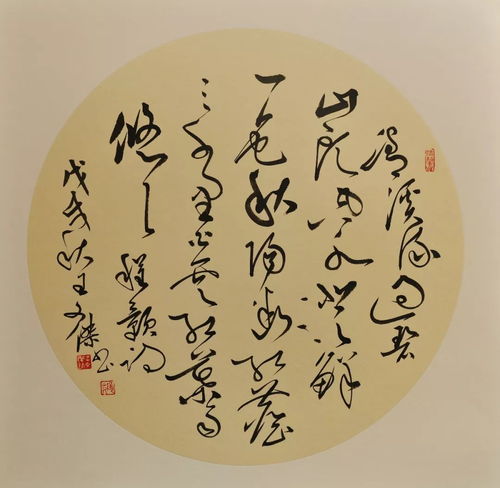 清溪流過碧
山頭空水澄鮮
一色秋隔斷紅塵
三十里白雲紅葉兩
悠悠 程顥詩
戊戌秋王文傑書